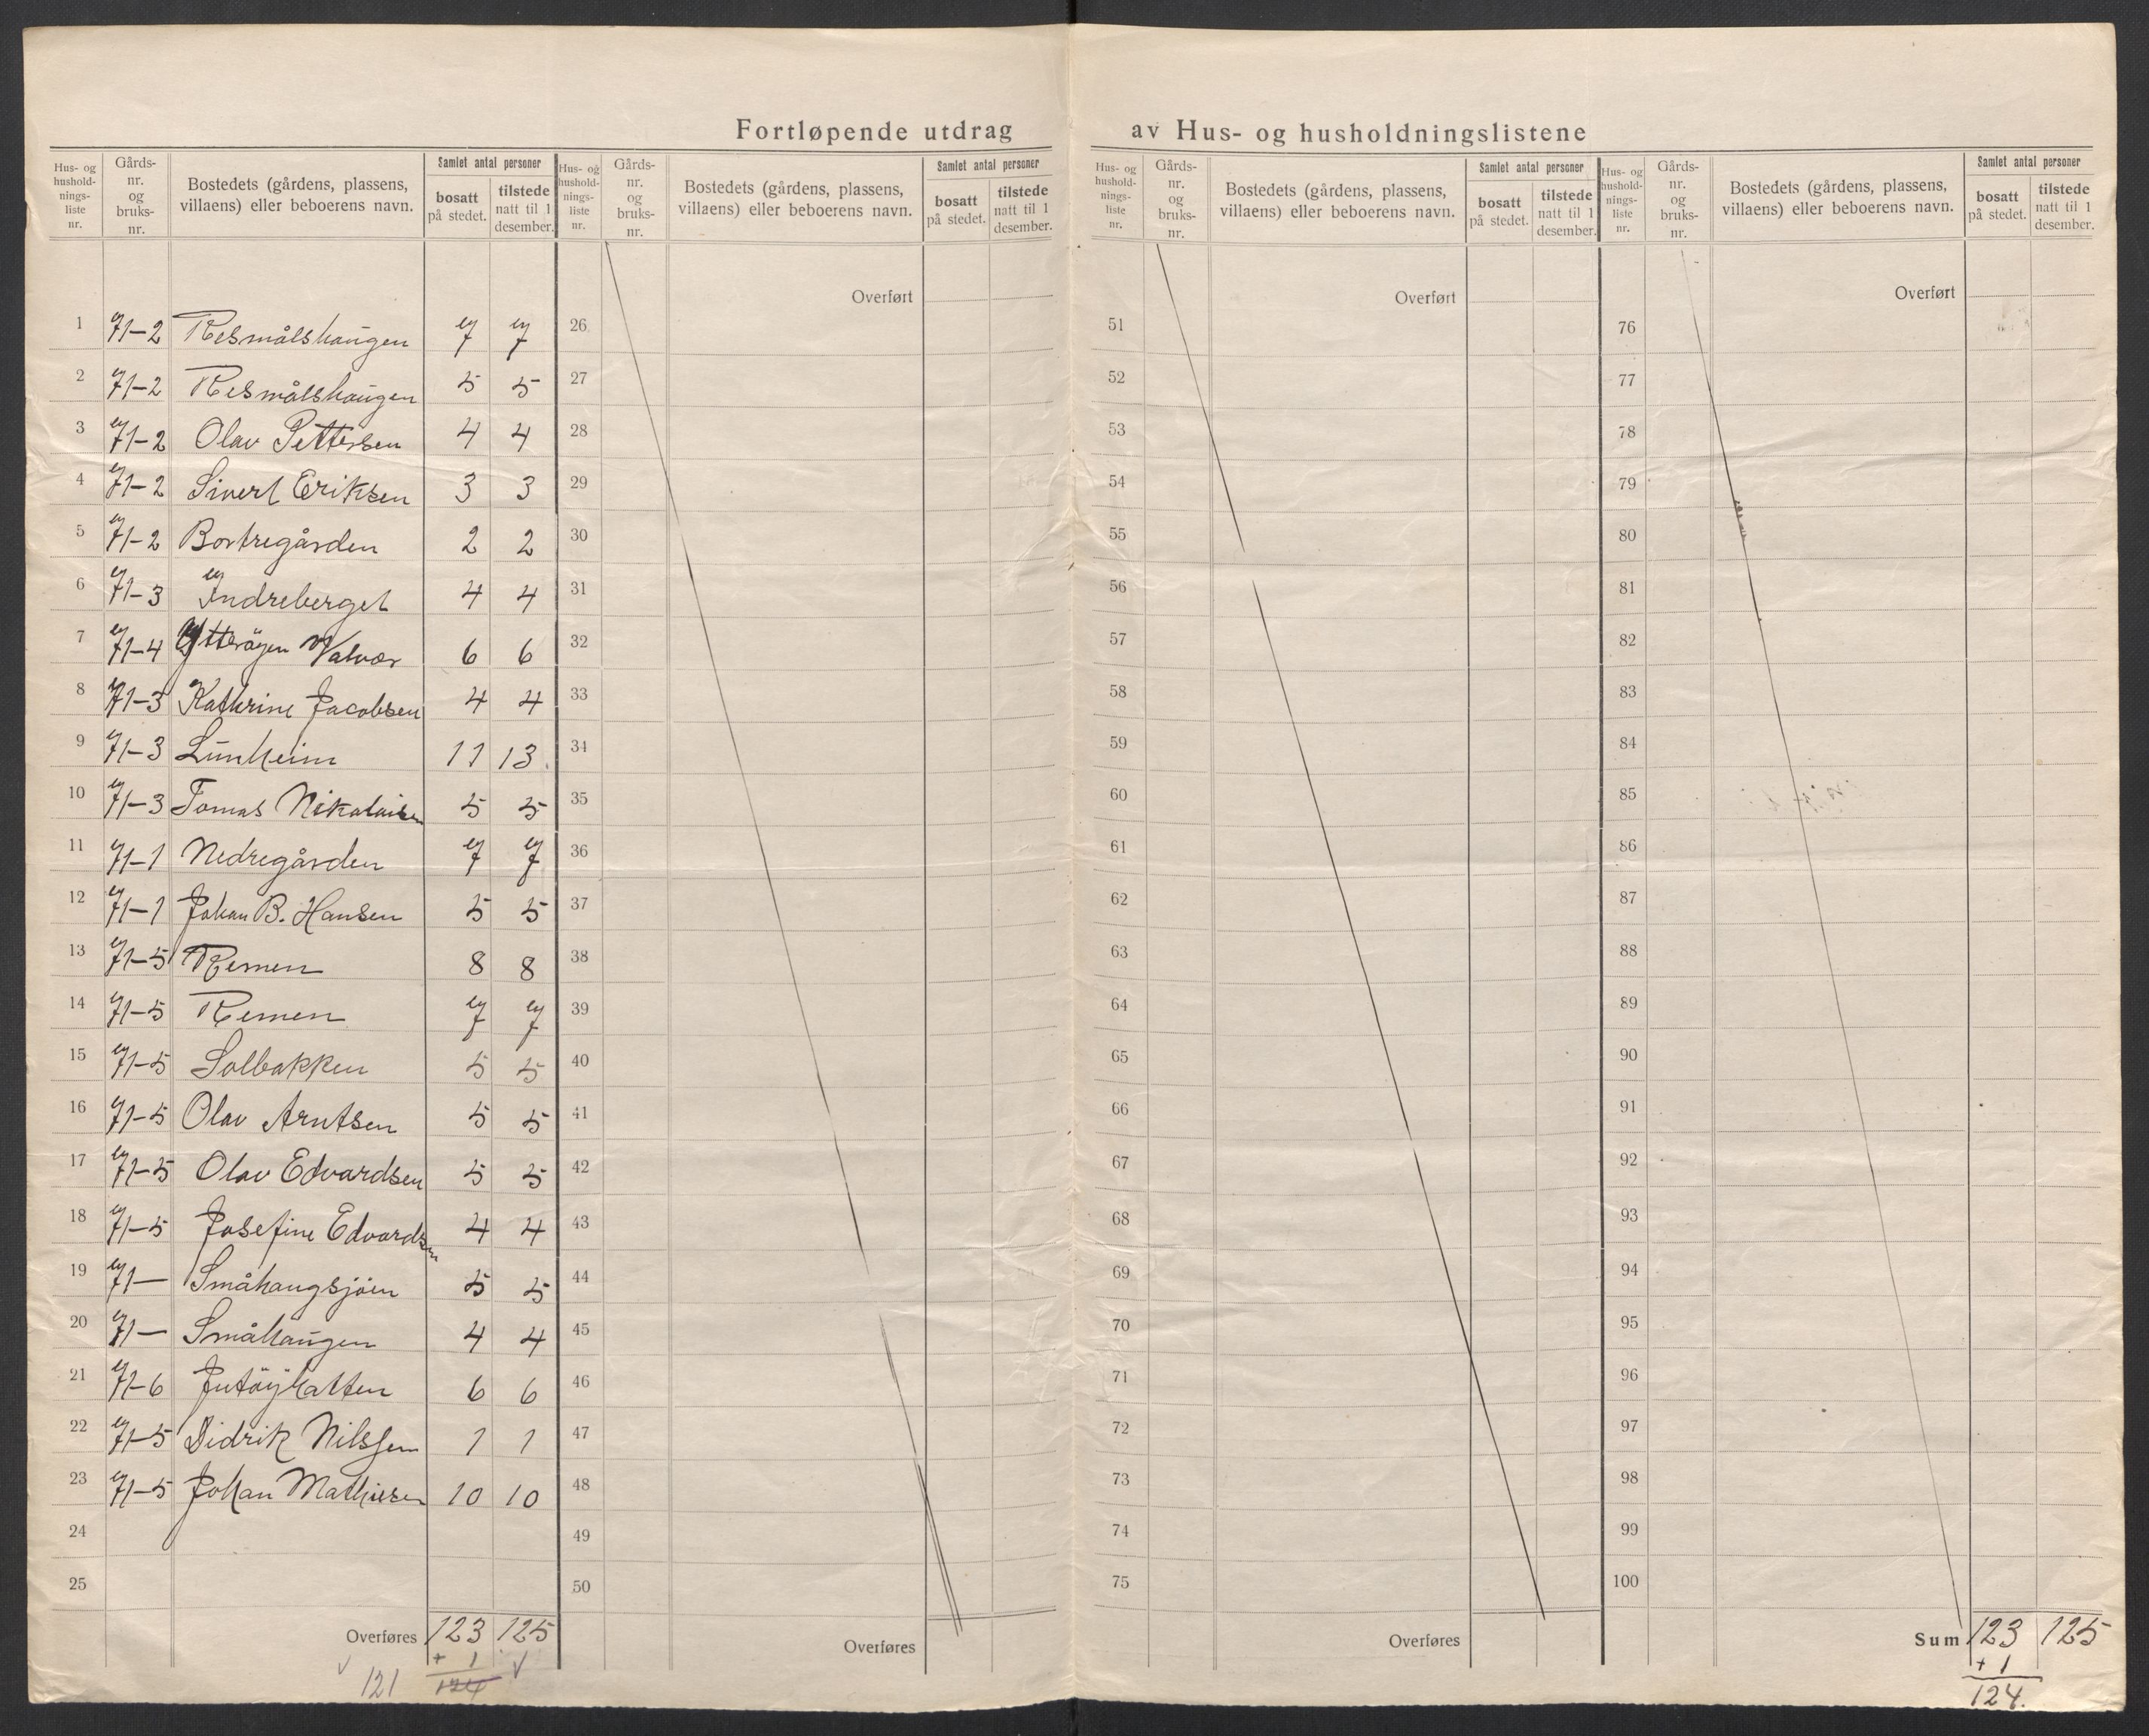 Fortløpende utdrag av Hus- og husholdningslistene
Hus- og hushold-nings-liste nr. | Gårds-nr. og bruks-nr. | Bostedets (gårdens, plassens, villaens) eller beboerens navn. | Samlet antal personer | bosatt på stedet. | tilstede natt til 1 desember.
Hus- og hushold-nings-liste nr. | Gårds-nr. og bruks-nr. | Bostedets (gårdens, plassens, villaens) eller beboerens navn. | Samlet antal personer | bosatt på stedet. | tilstede natt til 1 desember.
Hus- og hushold-nings-liste nr. | Gårds-nr. og bruks-nr. | Bostedets (gårdens, plassens, villaens) eller beboerens navn. | Samlet antal personer | bosatt på stedet. | tilstede natt til 1 desember.
Hus- og hushold-nings-liste nr. | Gårds-nr. og bruks-nr. | Bostedets (gårdens, plassens, villaens) eller beboerens navn. | Samlet antal personer | bosatt på stedet. | tilstede natt til 1 desember.
Overført Overført Overført
1 71-2 Resmålshaugen 7 7 26 51 76
2 71-2 Resmålshaugen 5 5 27 52 77
3 71-2 Olav Pettersen 4 4 28 53 78
4 71-2 Sivert Eriksen 3 3 29 54 79
5 71-2 Bortregården 2 2 30 55 80
6 71-3 Indreberget 4 4 31 56 81
7 71-4 Ytterøyen Valvær 6 6 32 57 82
8 71-3 Kathrine Jacobsen 4 4 33 58 83
9 71-3 Lunheim 11 13 34 59 84
10 71-3 Tomas Nikolaisen 5 5 35 60 85
11 71-1 Nedregården 7 7 36 61 86
12 71-1 Johan B. Hansen 5 5 37 62 87
13 71-5 Remen 8 8 38 63 88
14 71-5 Remen 7 7 39 64 89
15 71-5 Solbakken 5 5 40 65 90
16 71-5 Olav Arntsen 5 5 41 66 91
17 71-5 Olav Edvardsen 5 5 42 67 92
18 71-5 Josefine Edvardsen 4 4 43 68 93
19 71- Småhaugsjøen 5 5 44 69 94
20 71- Småhaugen 4 4 45 70 95
21 71-6 6 6 46 71 96
22 71-5 Didrik Nilssen 1 1 47 72 97
23 71-5 Johan Mathiesen 10 10 48 73 98
24 49 74 99
25 50 75 100
Overføres 123 125 Overføres Overføres Sum 123 125
+ 1 + 1
121 124 124.